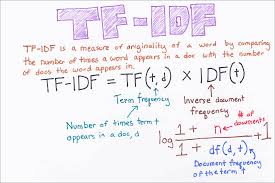 TF-IDF
TF-IDF is a measure of originality of a word by comparing
the number of times a word appears in a doc with the number
of docs the word appears in.
TF-IDF = TF(t, d) × IDF(t)
Term frequency
Inverse document
frequency
Number of times term t
appears in a doc, d
# of
documents
log 1 + n / 1 + df(d, t) + 1
Document frequency
of the term t